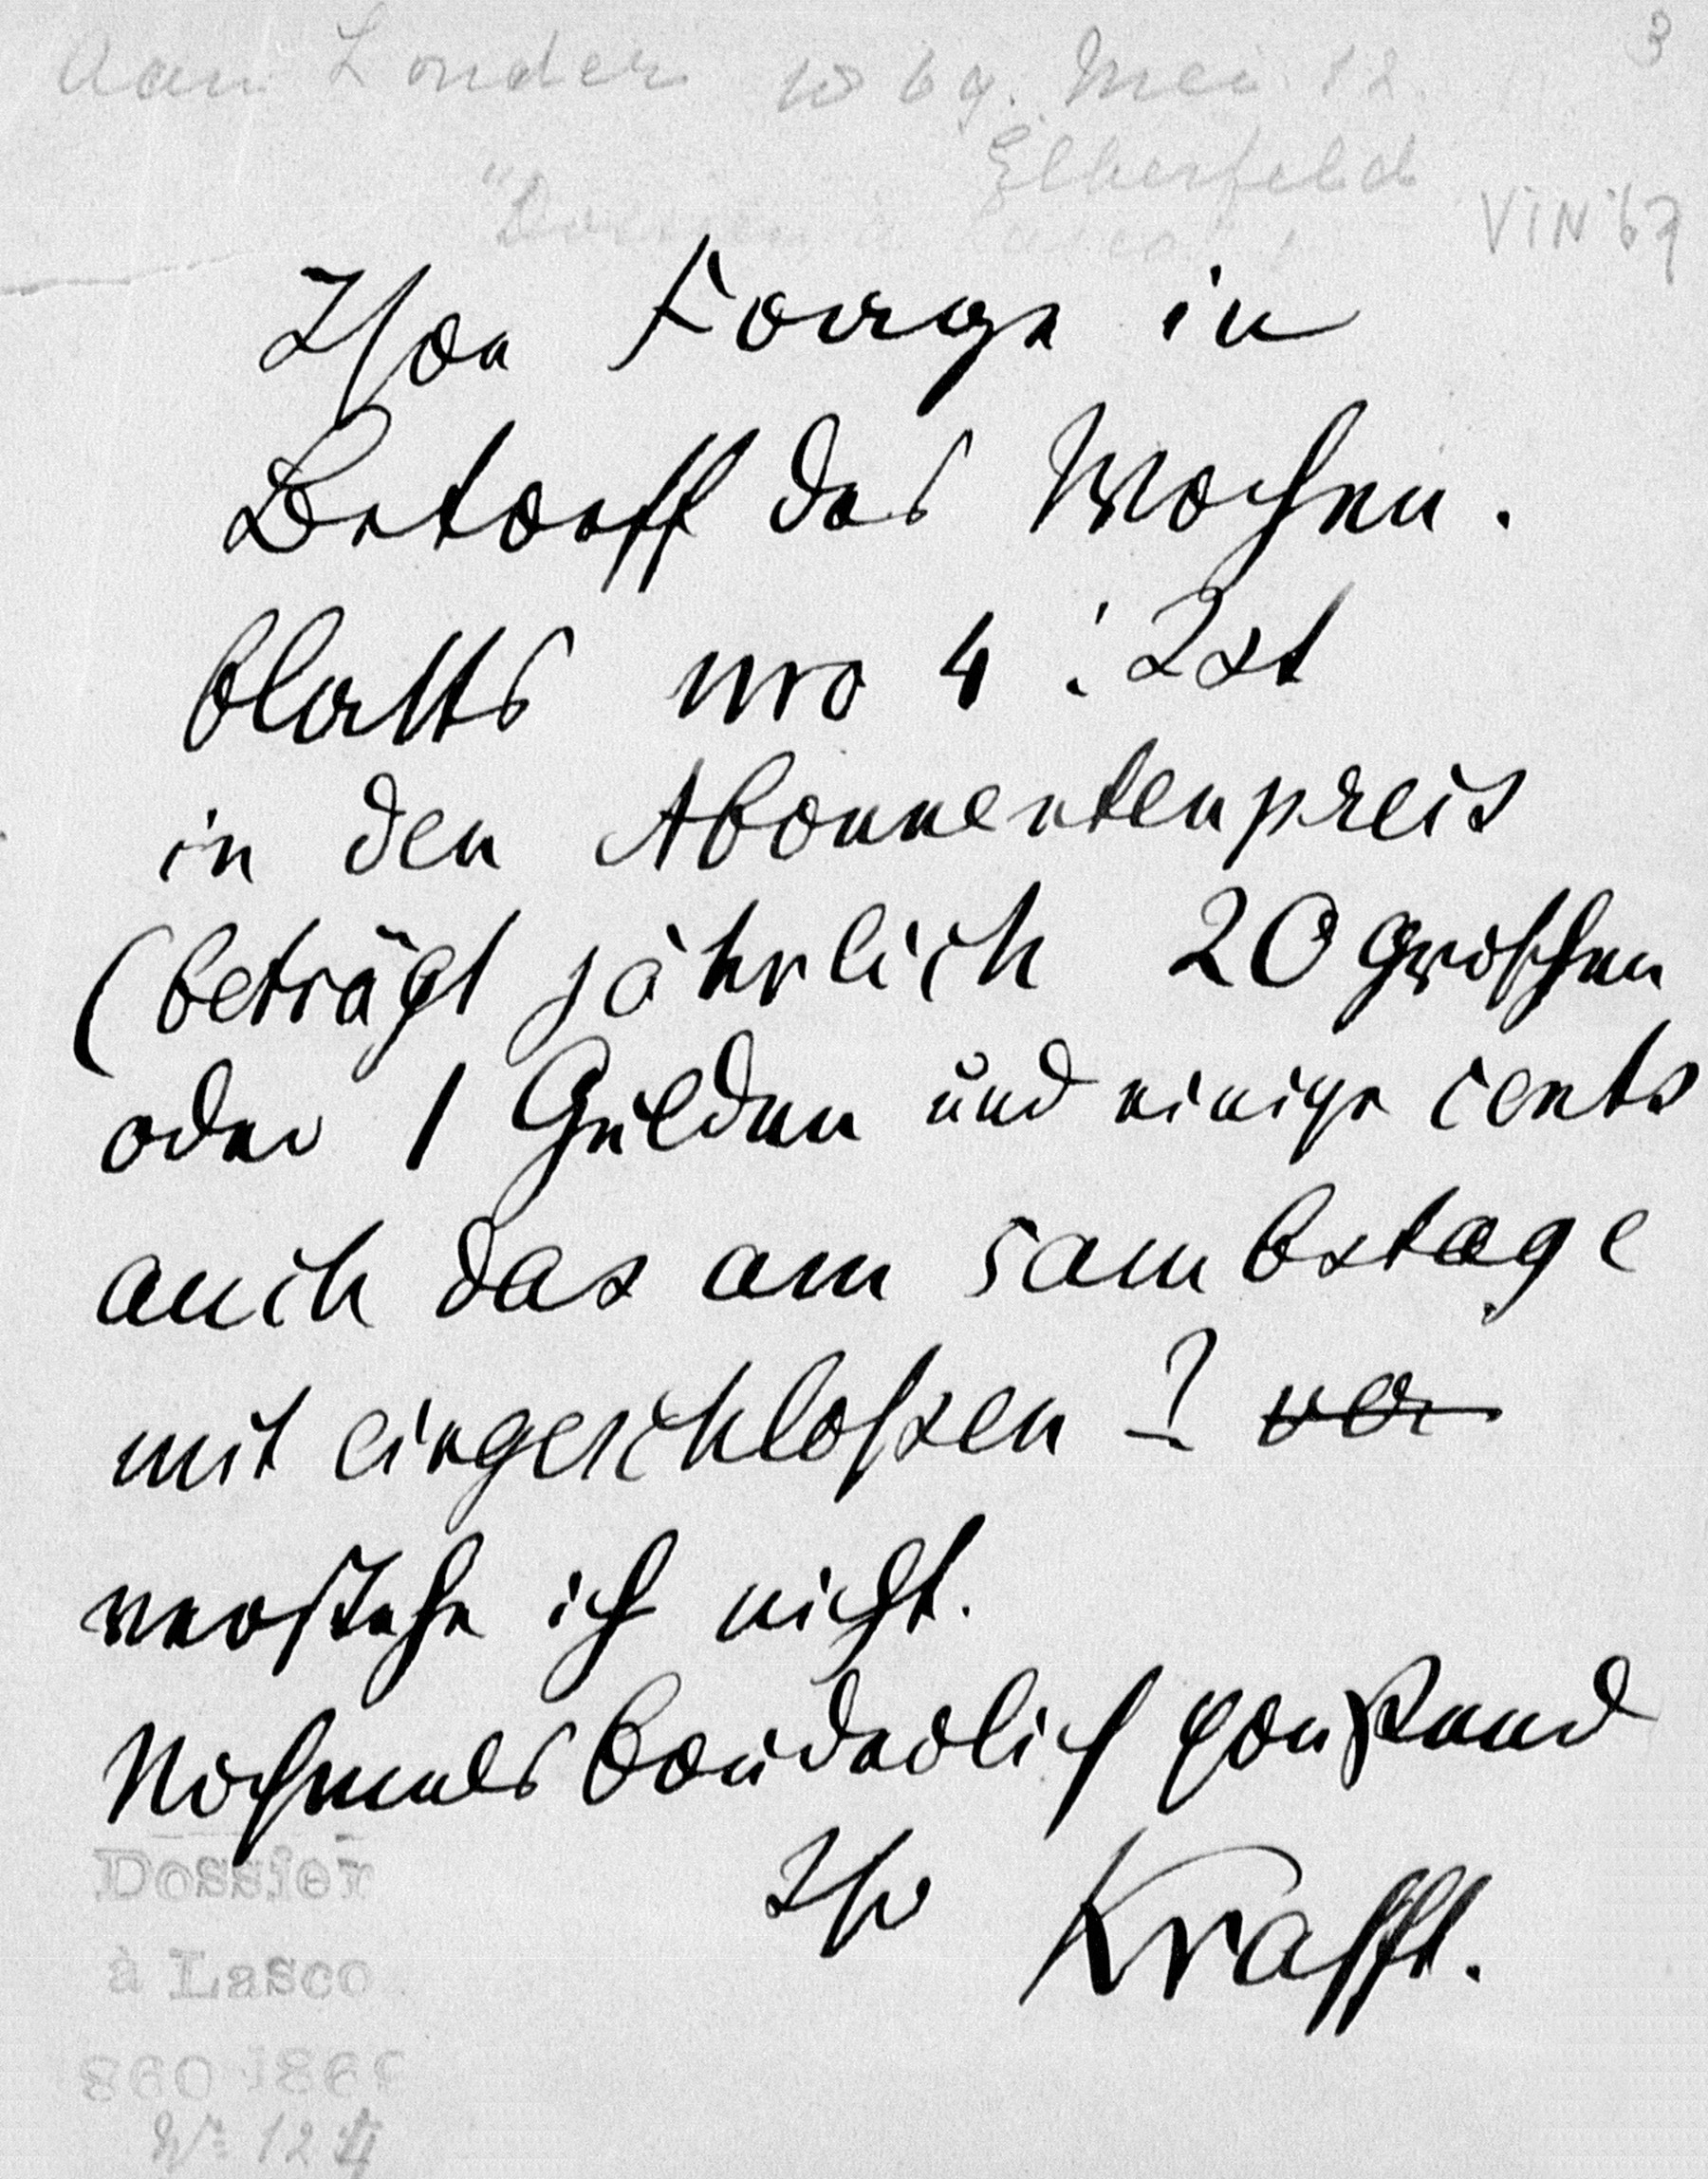 Aan Londer 1869. Mei 12. 3
Elberfeld
VIN '67
Ihre Frage in
Betreff des Wochen.
blatts No 4: Ist
in den Abonnentenpreis
(beträgt jährlich 20 Groschen
oder 1 Gulden und einige cents
auch das am sambstage
mit eingeschloßen? ver
verstehe ich nicht.
Nochmals brüderlich grüßend
Ihr Krafft.
Dossier
à Lasco
No 124